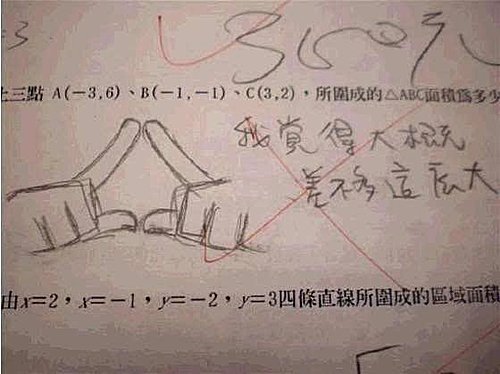 =3
360元
上三點 A(−3,6)、B(−1,−1)、C(3,2)，所圍成的△ABC面積為多少
我覺得大概
差不多這麼大
由x=2，x=−1，y=−2，y=3四條直線所圍成的區域面積